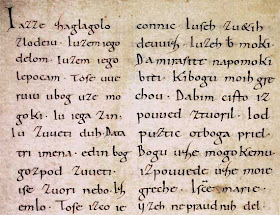 Iazze zaglagolo
zlodeiu. Iuzem iego
delom. Iuzem iego
lepocam. Tose uue
ruiu ubog uze mo
goki. Iu iega zin.
Iu zuueti duh. Data
tri imena. edin bog
gozpod zuueti.
ise zuori nebo. Iz
emlo. Tose izco ie
connic. Iuseh
deuuiz. Iuzeh b moki.
Da mirasite na pomoki
biti. Kibogu moih gre
chou. Dabim cisto iz
pouued ztuoril. Iod
puztic otboga priel.
Bogu uze mogokemu
izpouuede uze moie
greche. Isce marie.
uzeh nepraudnih del.